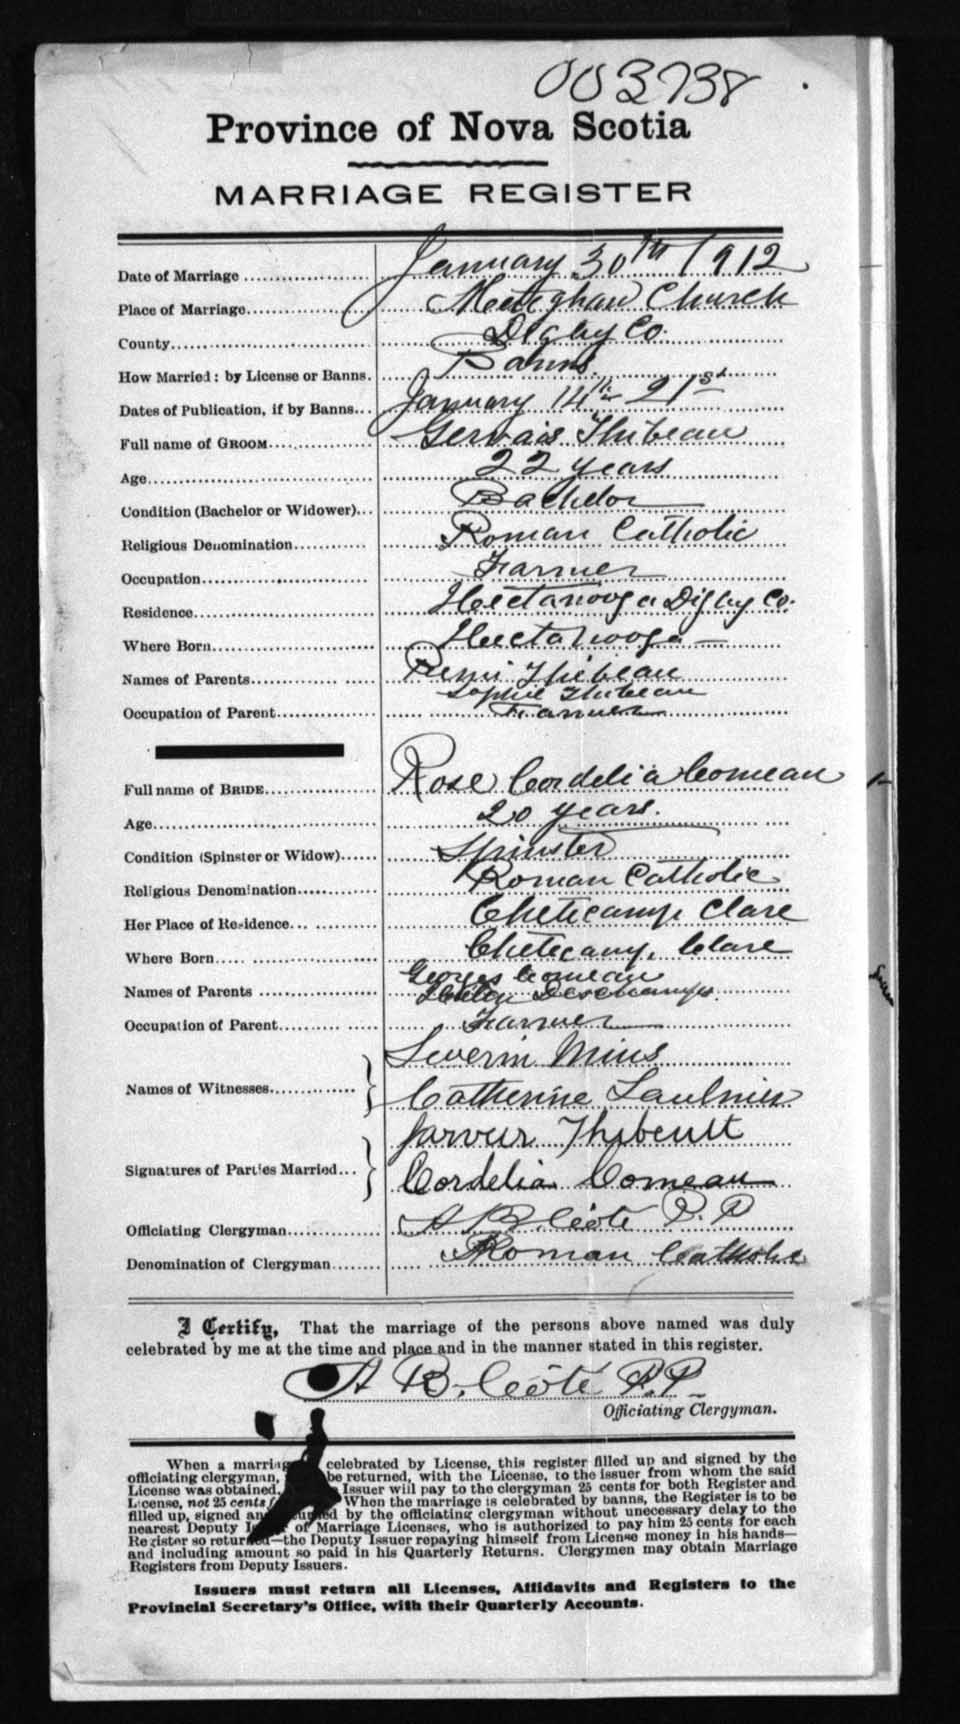 003738
Province of Nova Scotia
MARRIAGE REGISTER
Date of Marriage January 30th 1912
Place of Marriage Meteghan Church
County Digby Co.
How Married: by License or Banns. Banns.
Dates of Publication, if by Banns January 14th 21st
Full name of GROOM Gervais Thibeau
Age 22 years
Condition (Bachelor or Widower) Bachelor
Religious Denomination Roman Catholic
Occupation Farmer
Residence Hectanooga Digby Co.
Where Born Hectanooga
Names of Parents Remi Thibeau
Sophie Thibeau
Occupation of Parent Farmer
Full name of BRIDE Rose Cordelia Comeau
Age 20 years.
Condition (Spinster or Widow) Spinster
Religious Denomination Roman Catholic
Her Place of Residence Cheticamp Clare
Where Born Cheticamp, Clare
Georges Comeau
Names of Parents Deschamps
Occupation of Parent Farmer
Severin Mius
Names of Witnesses
Catherine Saulnier
Thibeult
Signatures of Parties Married
Cordelia Comeau
Officiating Clergyman A B. Côté P.P
Denomination of Clergyman Roman Catholic
I Certify, That the marriage of the persons above named was duly
celebrated by me at the time and place and in the manner stated in this register.
A B. Côté P.P.
Officiating Clergyman.
When a celebrated by License, this register filled up and signed by the
officiating clergyman, be returned, with the License, to the issuer from whom the said
License was obtained. Issuer will pay to the clergyman 25 cents for both Register and
License, not 25 cents When the marriage is celebrated by banns, the Register is to be
filled up, signed by the officiating clergyman without unecessary delay to the
nearest Deputy of Marriage Licenses, who is authorized to pay him 25 cents for each
Register so returned—the Deputy Issuer repaying himself from License money in his hands—
and including amount so paid in his Quarterly Returns. Clergymen may obtain Marriage
Registers from Deputy Issuers.
Issuers must return all Licenses, Affidavits and Registers to the
Provincial Secretary's Office, with their Quarterly Accounts.